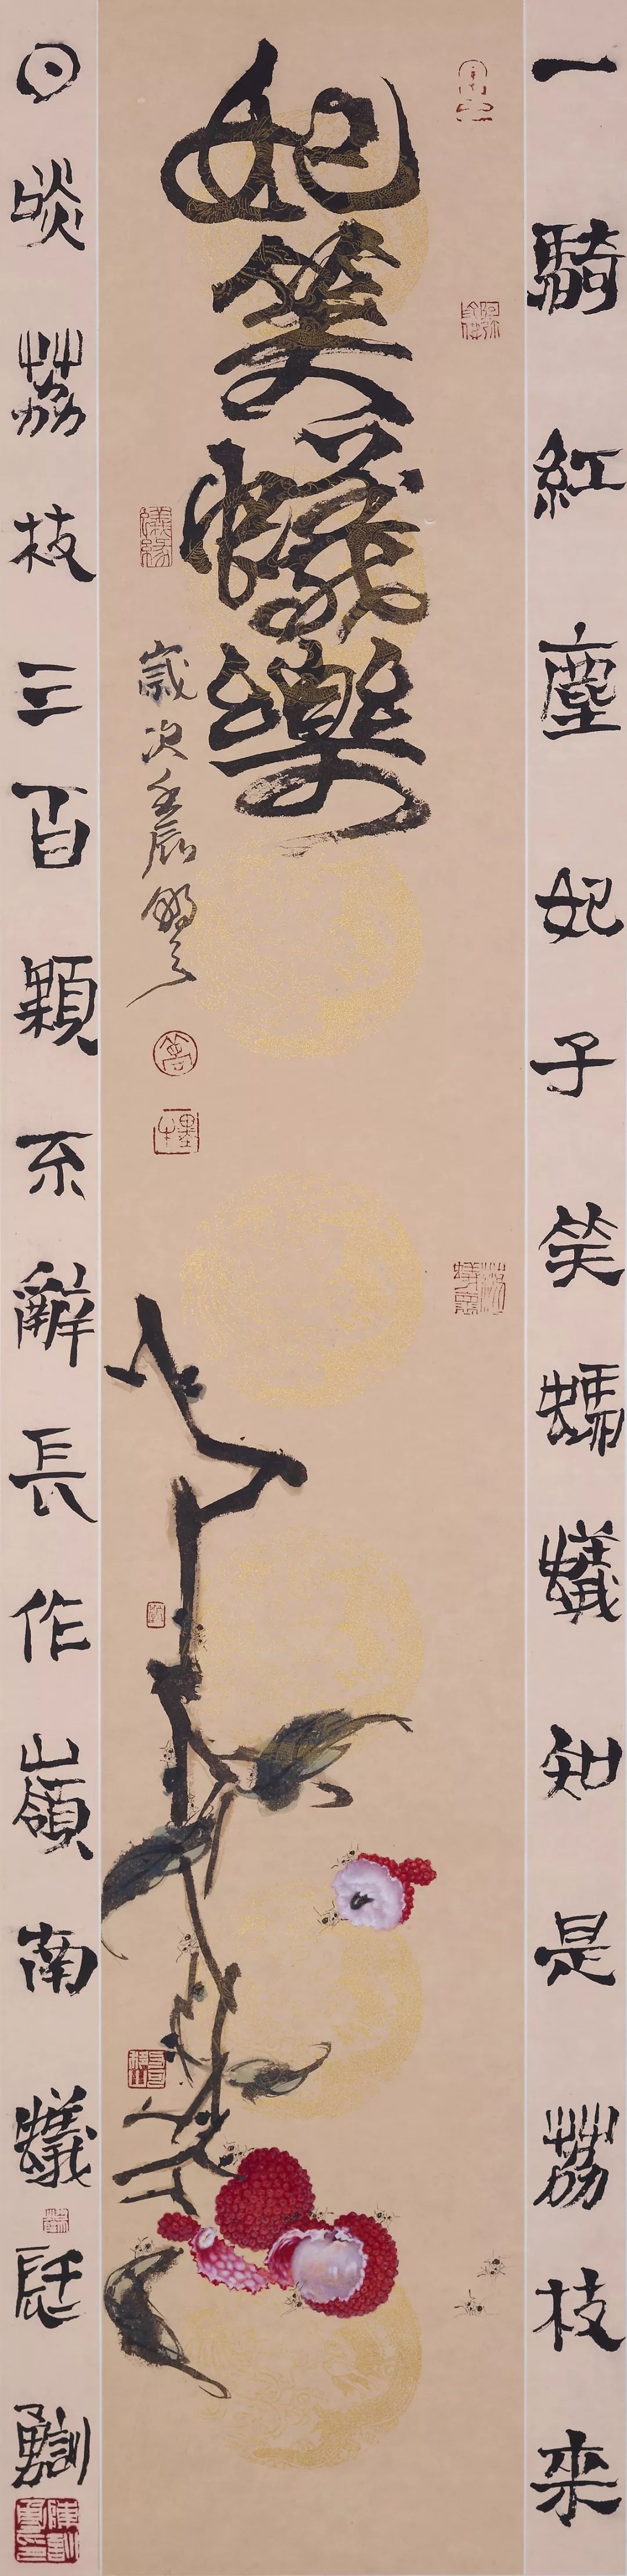 一騎紅塵妃子笑螞蟻知是荔枝來
妃笑蟻樂
歲次壬辰
日啖荔枝三百顆不辭長作嶺南蟻
壬辰
訓勇